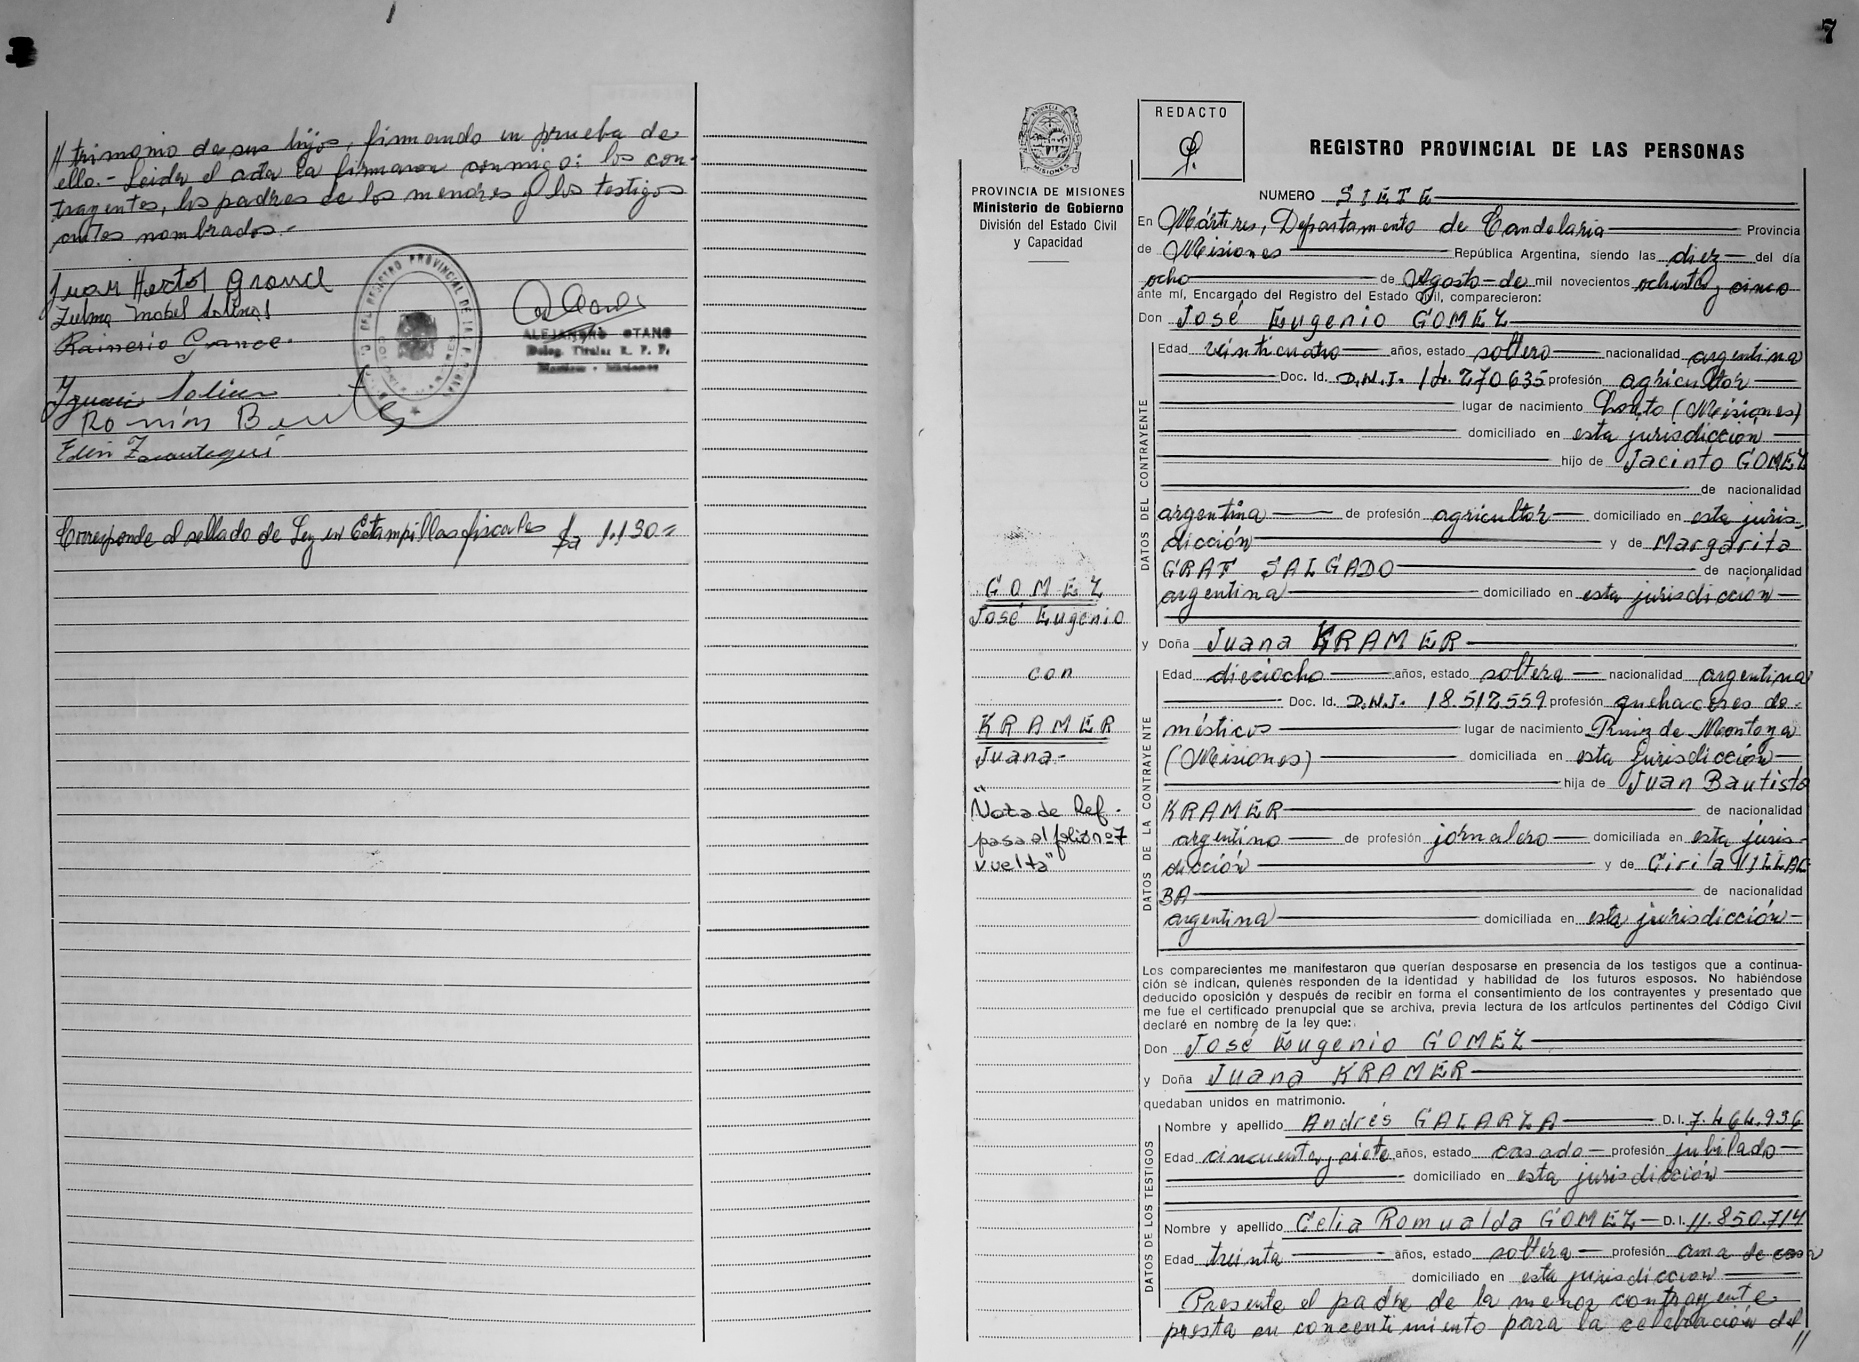 // trimonio de sus hijos, firmando en prueba de
ello.- Leida el acta la firmaron conmigo: los con-
trayentes, los padres de los menores y los testigos
antes nombrados.-
Juan Hector Grance
Zulma Mabel Solinas
Rainerio Grance.
Solinas
Román
Edin
REGISTRO PROVINCIAL DE LA
ALEJANDRO OTANO
Deleg. Titular R. P. P.
Martires - Misiones
Corresponde al sellado de Ley en Estampillas fiscales $a 1.130=
7
PROVINCIA DE MISIONES
Ministerio de Gobierno
División del Estado Civil
y Capacidad
REDACTO
REGISTRO PROVINCIAL DE LAS PERSONAS
NUMERO SIETE
En Mártires, Departamento de Candelaria Provincia
de Misiones República Argentina, siendo las diez del día
ocho de Agosto de mil novecientos ochenta y cinco
ante mí, Encargado del Registro del Estado Civil, comparecieron:
Don José Eugenio GOMEZ
DATOS DEL CONTRAYENTE
Edad veinticuatro años, estado soltero nacionalidad argentina
Doc. Id. D.N.I. 14.270635 profesión agricultor
lugar de nacimiento (Misiones)
domiciliado en esta jurisdicción
hijo de Jacinto GOMEZ
de nacionalidad
argentina de profesión agricultor domiciliado en esta juris-
dicción y de Margarita
GRAF SALGADO de nacionalidad
argentina domiciliado en esta jurisdicción
GOMEZ
José Eugenio
con
KRAMER
Juana-
"Nota de Ref.
pasa al folio nº 7
vuelta"
y Doña Juana KRAMER
DATOS DE LA CONTRAYENTE
Edad dieciocho años, estado soltera nacionalidad argentina
Doc. Id. D.N.I. 18.512559 profesión quehaceres do-
mésticos lugar de nacimiento Ruiz de Montoya
(Misiones) domiciliada en esta jurisdicción
hija de Juan Bautista
KRAMER de nacionalidad
argentino de profesión jornalero domiciliada en esta juris-
dicción y de Cirila VILLAL
BA de nacionalidad
argentina domiciliada en esta jurisdicción
Los comparecientes me manifestaron que querían desposarse en presencia de los testigos que a continua-
ción se indican, quienes responden de la identidad y habilidad de los futuros esposos. No habiéndose
deducido oposición y después de recibir en forma el consentimiento de los contrayentes y presentado que
me fue el certificado prenupcial que se archiva, previa lectura de los artículos pertinentes del Código Civil
declaré en nombre de la ley que:
Don José Eugenio GOMEZ
y Doña Juana KRAMER
quedaban unidos en matrimonio.
DATOS DE LOS TESTIGOS
Nombre y apellido Andrés GALARZA D.I. 7.464.936
Edad cincuenta y siete años, estado casado profesión jubilado
domiciliado en esta jurisdicción
Nombre y apellido Celia Romualda GOMEZ D.I. 11.850.714
Edad treinta años, estado soltera profesión ama de casa
domiciliado en esta jurisdiccion
Presente el padre de la menor contrayente
presta su concentimiento para la celebración del //